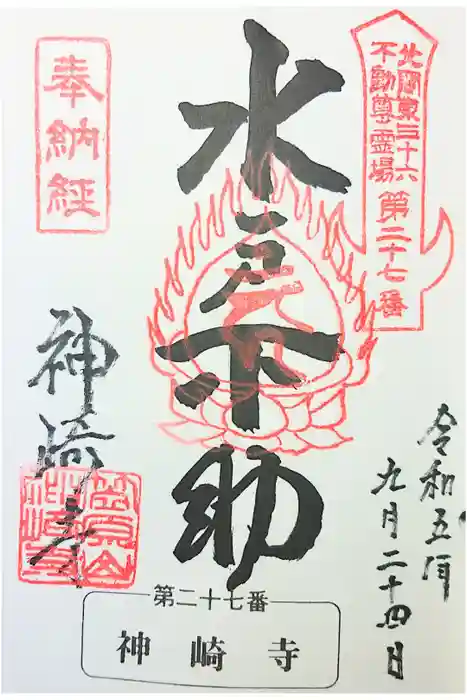 北関東三十六
不動尊霊場
第二十七番
奉納経
水戸不動
神崎寺
令和五年
九月二十四日
第二十七番
神崎寺